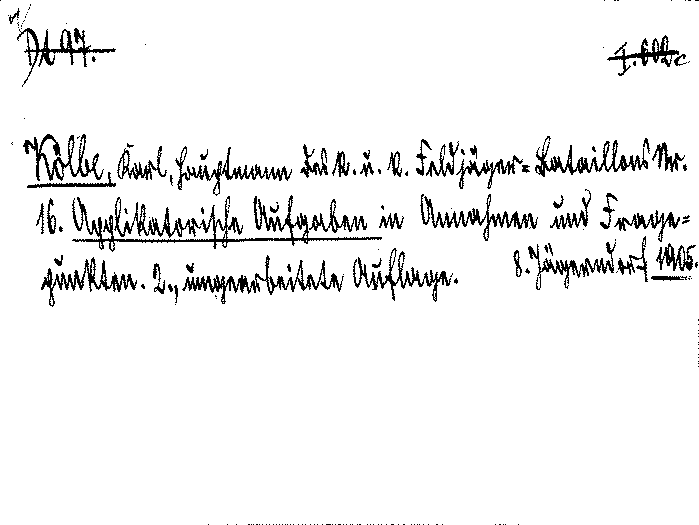 Dt 97. I. 602c
Kölbe, Karl, Hauptmann des k. u. k. Feldjäger=Bataillons Nr.
16. Applikatorische Aufgaben in Annahmen und Frage=
punkten. 2., umgearbeitete Auflage. 8. Jägerndorf 1905.